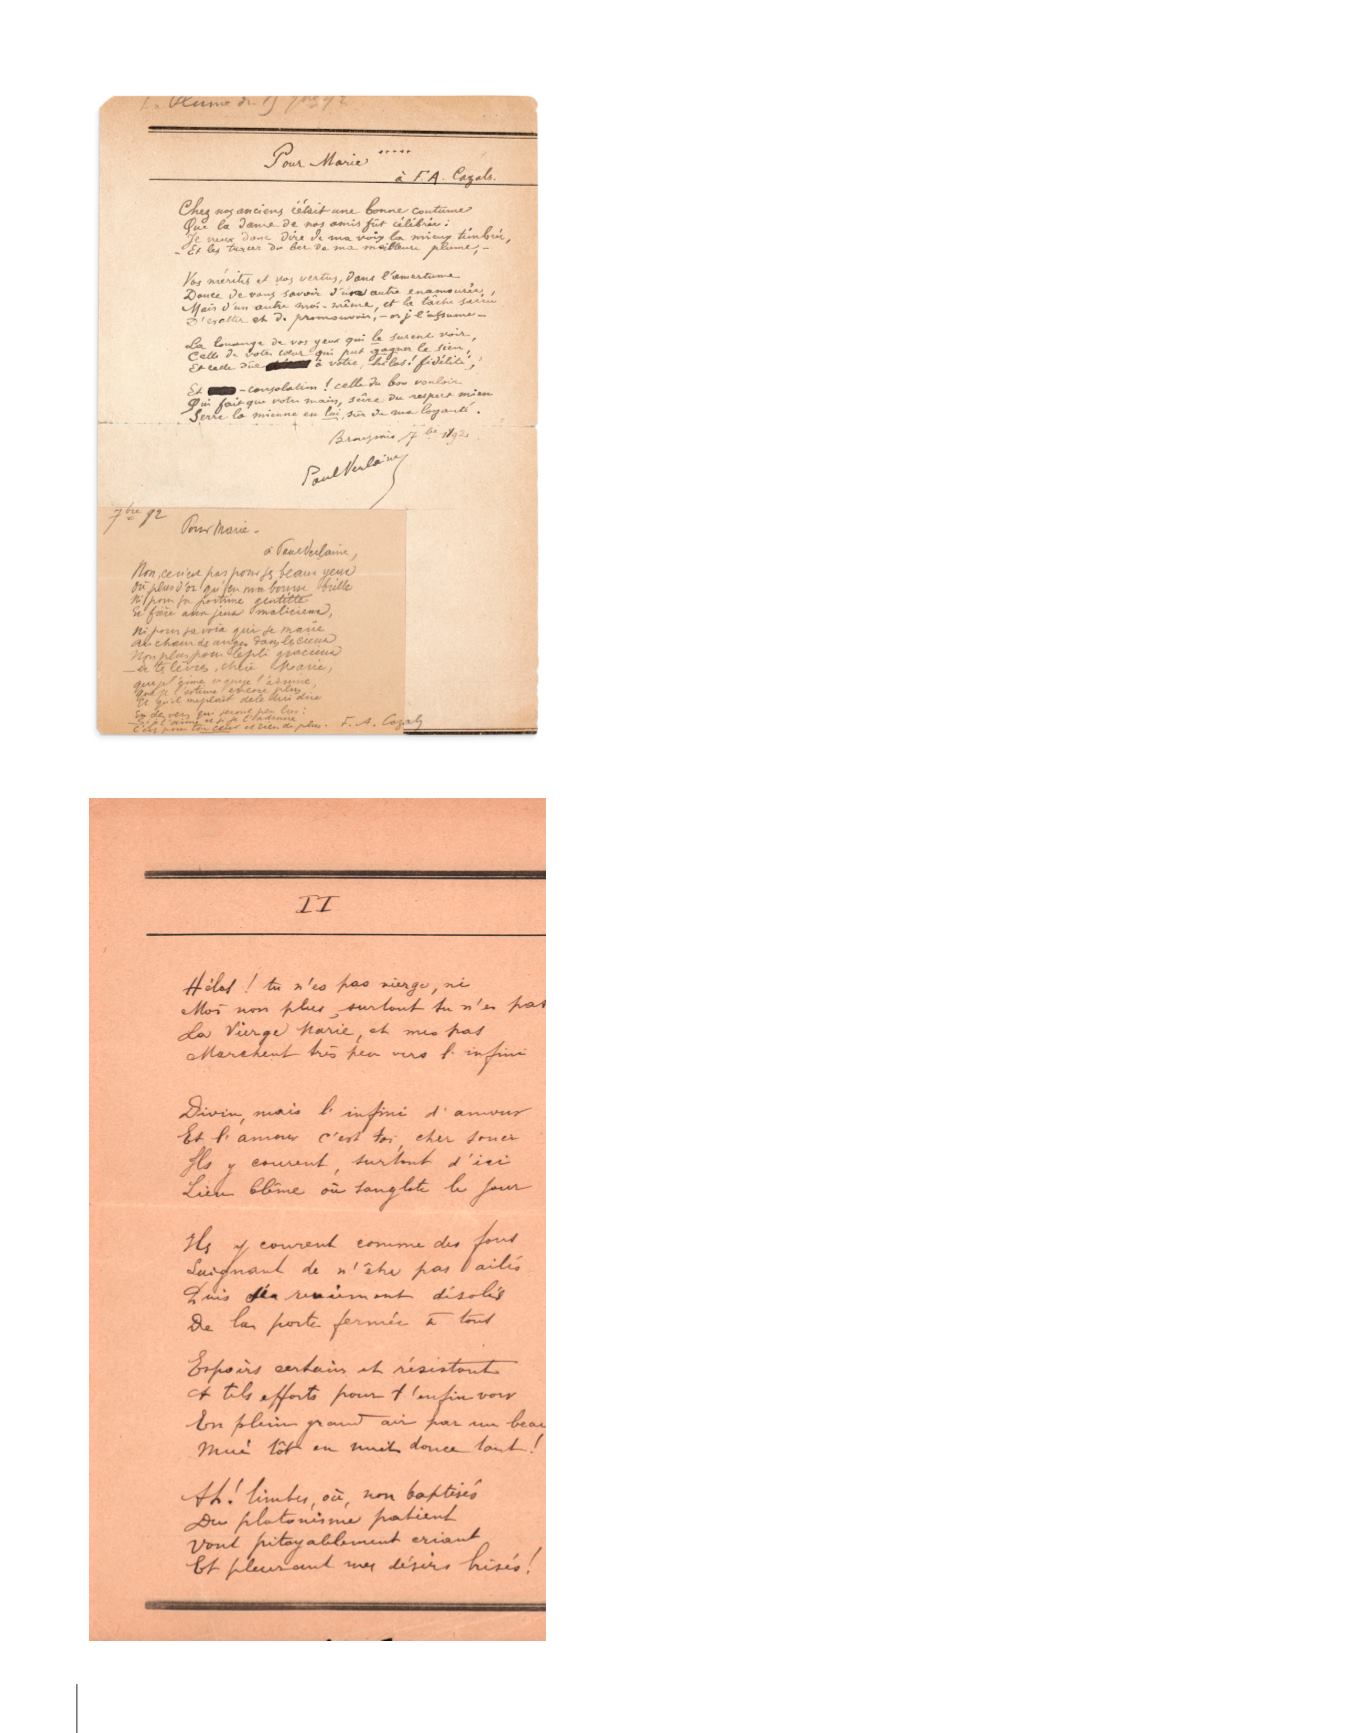 La Plume du 15 7bre 92
Pour Marie *****
à F. A. Cazals.
Chez nos anciens c'était une bonne coutume
Que la dame de nos amis fût célébrée :
Je veux donc dire de ma voix la mieux timbrée,
– Et les tracer du bec de ma meilleure plume, –
Vos mérites et vos vertus, dans l'amertume
Douce de vous savoir d'un autre enamourée,
Mais d'un autre moi-même, et la tâche sacrée
D'exalter et de promouvoir, – or j'l'assume –
La louange de vos yeux qui le surent voir,
Celle de votre cœur qui put gagner le sien,
Et celle due à votre, hélas ! fidélité,
Et – consolation ! celle du bon vouloir
Qui fait que votre main, sûre du respect mien
Serre la mienne en lui, sûr de ma loyauté.
7bre 1892
Paul Verlaine
7bre 92
Pour Marie –
à Paul Verlaine,
Non, ce n'est pas pour ses beaux yeux
Où plus d'or qu'en ma bourse brille
Ni pour sa poitrine gentille
Et fière aux jeux malicieux,
Ni pour sa voix qui se marie
Au chœur des anges dans les cieux
Non plus pour le pli gracieux
– de tes lèvres, chère Marie,
que je l'aime et que je l'admire,
Que je l'estime encore plus,
Et qu'il me plaît de le lui dire
En des vers qui seront peu lus :
C'est pour ton cœur et rien de plus. F. A. Cazals
II
Hélas ! tu n'es pas vierge, ni
Moi non plus, surtout tu n'es pas
La Vierge Marie, et mes pas
Marchent très peu vers l'infini
Divin, mais l'infini d'amour
Et l'amour c'est toi, cher souci
Ils y courent, surtout d'ici
Lieu blême où sanglote le jour
Ils y courent comme des fous
Saignant de n'être pas ailés
Puis s'en reviennent désolés
De la porte fermée à tous
Espoirs certains et résistants
A tels efforts pour t'enfin voir
En plein grand air par un beau
Mué tôt en nuit douce tant !
Ah ! limbes, où, non baptisés
Du platonisme patient
Vont pitoyablement criant
Et pleurant mes désirs brisés !